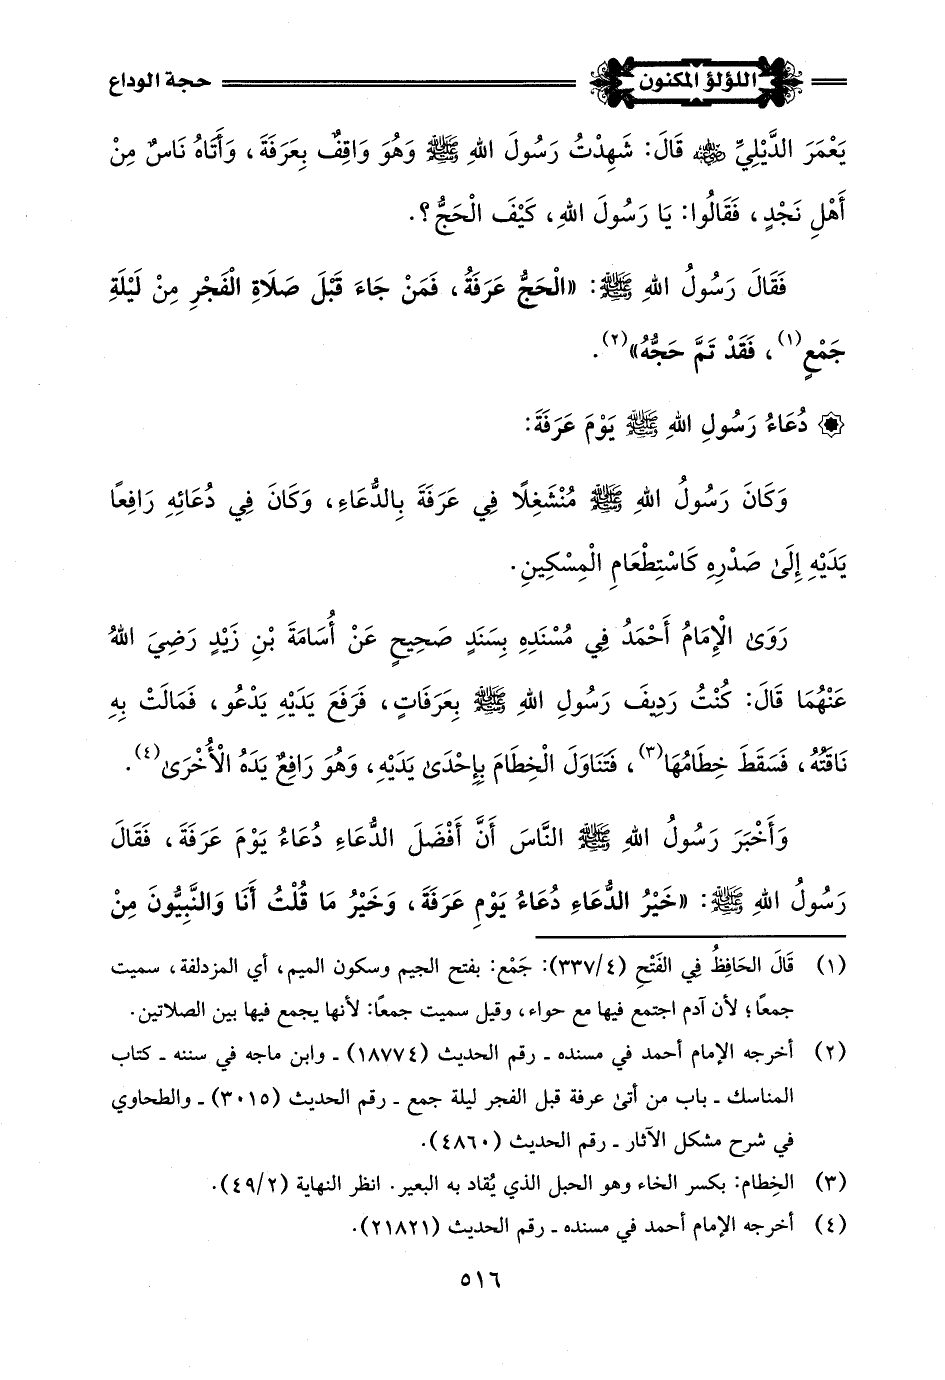 اللؤلؤ المكنون
حجة الوداع
يَعْمَرَ الدَّيْلِيِّ رضي الله عنه قَالَ: شَهِدْتُ رَسُولَ اللهِ ﷺ وَهُوَ وَاقِفٌ بِعَرَفَةَ، وَأَتَاهُ نَاسٌ مِنْ
أَهْلِ نَجْدٍ، فَقَالُوا: يَا رَسُولَ اللهِ، كَيْفَ الْحَجُّ؟.
فَقَالَ رَسُولُ اللهِ ﷺ: «الْحَجُّ عَرَفَةُ، فَمَنْ جَاءَ قَبْلَ صَلَاةِ الْفَجْرِ مِنْ لَيْلَةِ
جَمْعٍ(١)، فَقَدْ تَمَّ حَجُّهُ»(٢).
دُعَاءُ رَسُولِ اللهِ ﷺ يَوْمَ عَرَفَةَ:
وَكَانَ رَسُولُ اللهِ ﷺ مُنْشَغِلًا فِي عَرَفَةَ بِالدُّعَاءِ، وَكَانَ فِي دُعَائِهِ رَافِعًا
يَدَيْهِ إِلَىٰ صَدْرِهِ كَاسْتِطْعَامِ الْمِسْكِينِ.
رَوَىٰ الْإِمَامُ أَحْمَدُ فِي مُسْنَدِهِ بِسَنَدٍ صَحِيحٍ عَنْ أُسَامَةَ بْنِ زَيْدٍ رَضِيَ اللهُ
عَنْهُمَا قَالَ: كُنْتُ رَدِيفَ رَسُولِ اللهِ ﷺ بِعَرَفَاتٍ، فَرَفَعَ يَدَيْهِ يَدْعُو، فَمَالَتْ بِهِ
نَاقَتُهُ، فَسَقَطَ خِطَامُهَا(٣)، فَتَنَاوَلَ الْخِطَامَ بِإِحْدَىٰ يَدَيْهِ، وَهُوَ رَافِعٌ يَدَهُ الْأُخْرَىٰ(٤).
وَأَخْبَرَ رَسُولُ اللهِ ﷺ النَّاسَ أَنَّ أَفْضَلَ الدُّعَاءِ دُعَاءُ يَوْمَ عَرَفَةَ، فَقَالَ
رَسُولُ اللهِ ﷺ: «خَيْرُ الدُّعَاءِ دُعَاءُ يَوْمِ عَرَفَةَ، وَخَيْرُ مَا قُلْتُ أَنَا وَالنَّبِيُّونَ مِنْ
(١) قَالَ الحَافِظُ فِي الفَتْحِ (٣٣٧/٤): جَمْع: بفتح الجيم وسكون الميم، أي المزدلفة، سميت
جمعًا؛ لأن آدم اجتمع فيها مع حواء، وقيل سميت جمعًا: لأنها يجمع فيها بين الصلاتين.
(٢) أخرجه الإمام أحمد في مسنده ـ رقم الحديث (١٨٧٧٤) ـ وابن ماجه في سننه ـ كتاب
المناسك ـ باب من أتىٰ عرفة قبل الفجر ليلة جمع ـ رقم الحديث (٣٠١٥) ـ والطحاوي
في شرح مشكل الآثار ـ رقم الحديث (٤٨٦٠).
(٣) الخِطام: بكسر الخاء وهو الحبل الذي يُقاد به البعير. انظر النهاية (٤٩/٢).
(٤) أخرجه الإمام أحمد في مسنده ـ رقم الحديث (٢١٨٢١).
٥١٦